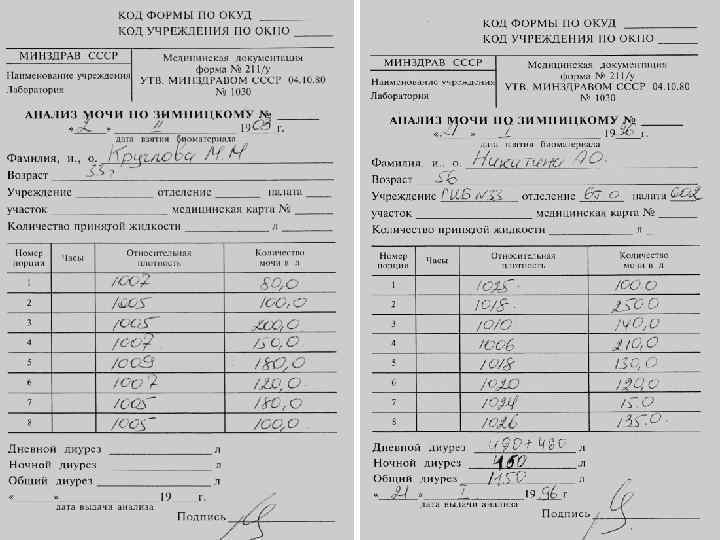 КОД ФОРМЫ ПО ОКУД
КОД УЧРЕЖДЕНИЯ ПО ОКПО
МИНЗДРАВ СССР
Наименование учреждения
Лаборатория
Медицинская документация
форма № 211/у
УТВ. МИНЗДРАВОМ СССР 04.10.80
№ 1030
АНАЛИЗ МОЧИ ПО ЗИМНИЦКОМУ №
« 2 » II 1903 г.
дата взятия биоматериала
Фамилия, и., о. Круглова М.М
Возраст 55г
Учреждение отделение палата
участок медицинская карта №
Количество принятой жидкости л
Номер порции Часы Относительная плотность Количество мочи в л
1 1007 80,0
2 1005 100,0
3 1005 200,0
4 1007 150,0
5 1009 180,0
6 1007 120,0
7 1005 180,0
8 1005 100,0
Дневной диурез л
Ночной диурез л
Общий диурез л
« » 19 г.
дата выдачи анализа
Подпись
КОД ФОРМЫ ПО ОКУД
КОД УЧРЕЖДЕНИЯ ПО ОКПО
МИНЗДРАВ СССР
Наименование учреждения
Лаборатория
Медицинская документация
форма № 211/у
УТВ. МИНЗДРАВОМ СССР 04.10.80
№ 1030
АНАЛИЗ МОЧИ ПО ЗИМНИЦКОМУ №
« 21 » I 1996 г.
дата взятия биоматериала
Фамилия, и., о. Никитина
Возраст 56
Учреждение ГКБ N53 отделение палата 602
участок медицинская карта №
Количество принятой жидкости л
Номер порции Часы Относительная плотность Количество мочи в л
1 1025 100.0
2 1018 250.0
3 1010 140,0
4 1006 210,0
5 1018 130,0
6 1020 120,0
7 1024 15.0
8 1026 135.0
Дневной диурез л
Ночной диурез л
Общий диурез 1150 л
« 21 » I 1996 г
дата выдачи анализа
Подпись